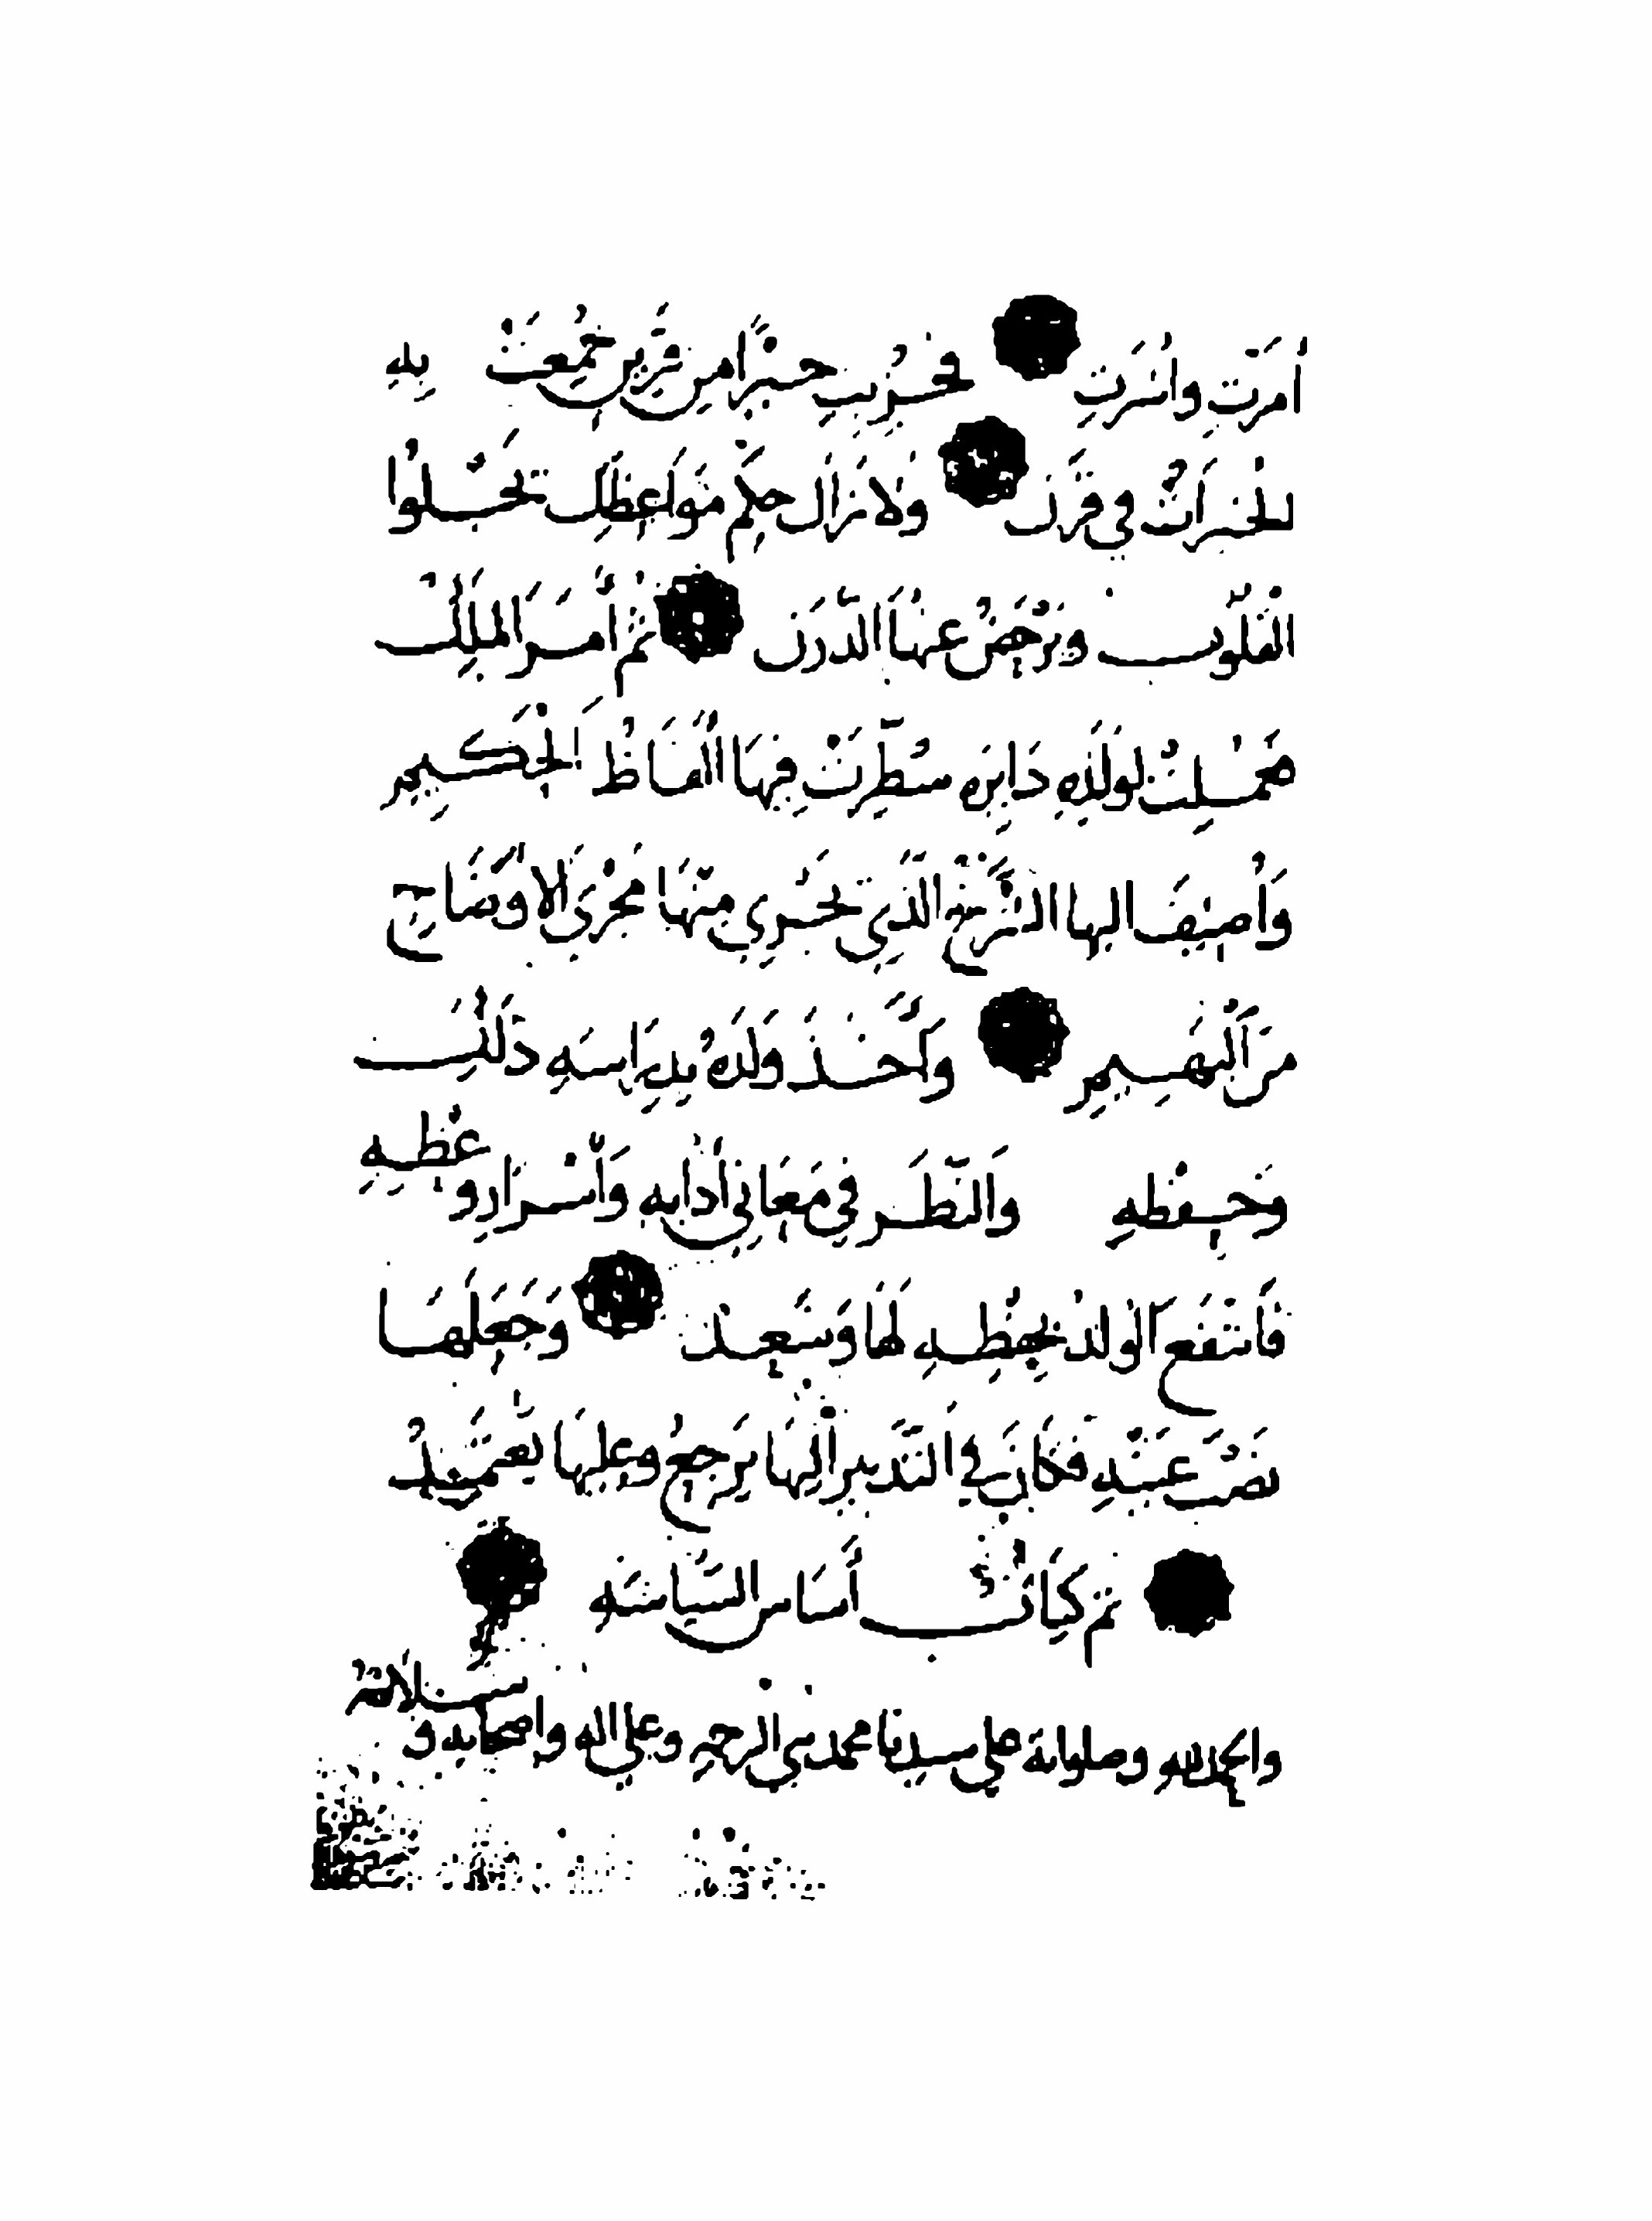 أَمَرَتَ وَأَشَرَتَ فَجُزِيتَ خَيْرًا مِن قَرِينٍ جُمِعَتْ بِهِ
الخَيْرَاتُ فِي قَرَنٍ وَلَا زَالَ حِكَمُ مَوَاعِظِكَ تَجْلُوا
القُلُوبَ وَتَرْحَضُ عَنْهَا الدَّرَنَ ثُمَّ أَمَرَ المَلِكُ
فَعُمِلَتْ لِوَلَدِهِ دَايرَه سُطِّرَتْ فِيهَا أَلْفَاظُ الحَكِيمِ
وَأُضِيفَ اليها الشَّرْحُ الَّذِي تَجْرِي مِنْهَا مَجْرَى الأَوْضَاحِ
مِنَ البَهِيمِ وَأَخَذَ وَلَدَهُ بِدِرَاسَتِهِ ذَلِكَ
وَحِفْظِهِ وَالنَّظَرِ فِي مَعَانِي أَدَابِهِ وَأَسْرَارِ وَعْظِهِ
فَانْتَفَعَ الوَلَدُ بِحِفْظِهِ لَهَا وَسَعِدَ وَجَعَلَهَا
نُصْبَ عَيْنَيْهِ فَكَانَ فِي التَّدْبِيرِ إِلَيْهَا يَرْجِعُ وعليها يَعْتَمِدُ
تم كِتَابُ أَسَاسِ السِّيَاسَةِ
والحمد لله وصلواته على سيدنا محمد نبي الرحمه وعلى اله واصحابه و
سلامه